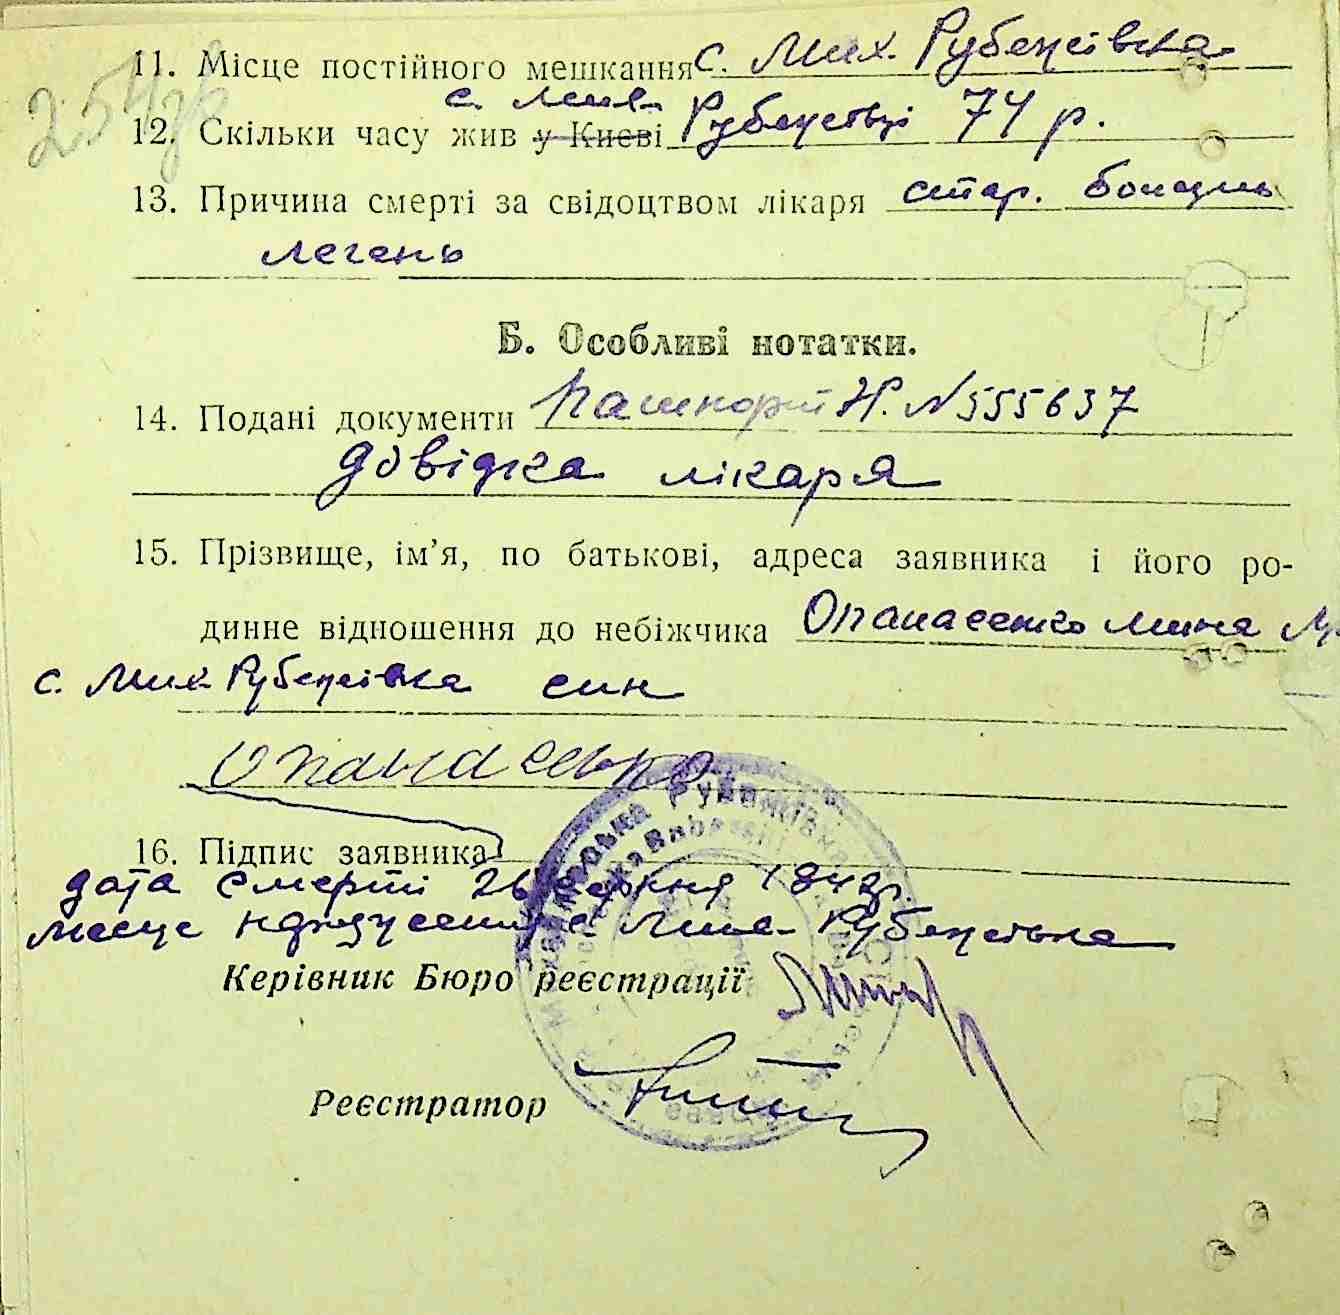 11. Місце постійного мешкання с. Мих. Рубежівка
с. Мих.
12. Скільки часу жив у Києві Рубежівці 74 р.
13. Причина смерті за свідоцтвом лікаря стар. болезнь
легень
Б. Особливі нотатки.
14. Подані документи Пашпорт Н. № 555637
довідка лікаря
15. Прізвище, ім’я, по батькові, адреса заявника і його ро-
динне відношення до небіжчика Опанасенко Мина
с. Мих. Рубежівка син
Опанасенко
16. Підпис заявника
дата смерті 26 серпня 1942 р.
месце с. Мих. Рубежівка
Керівник Бюро реєстрації
Реєстратор